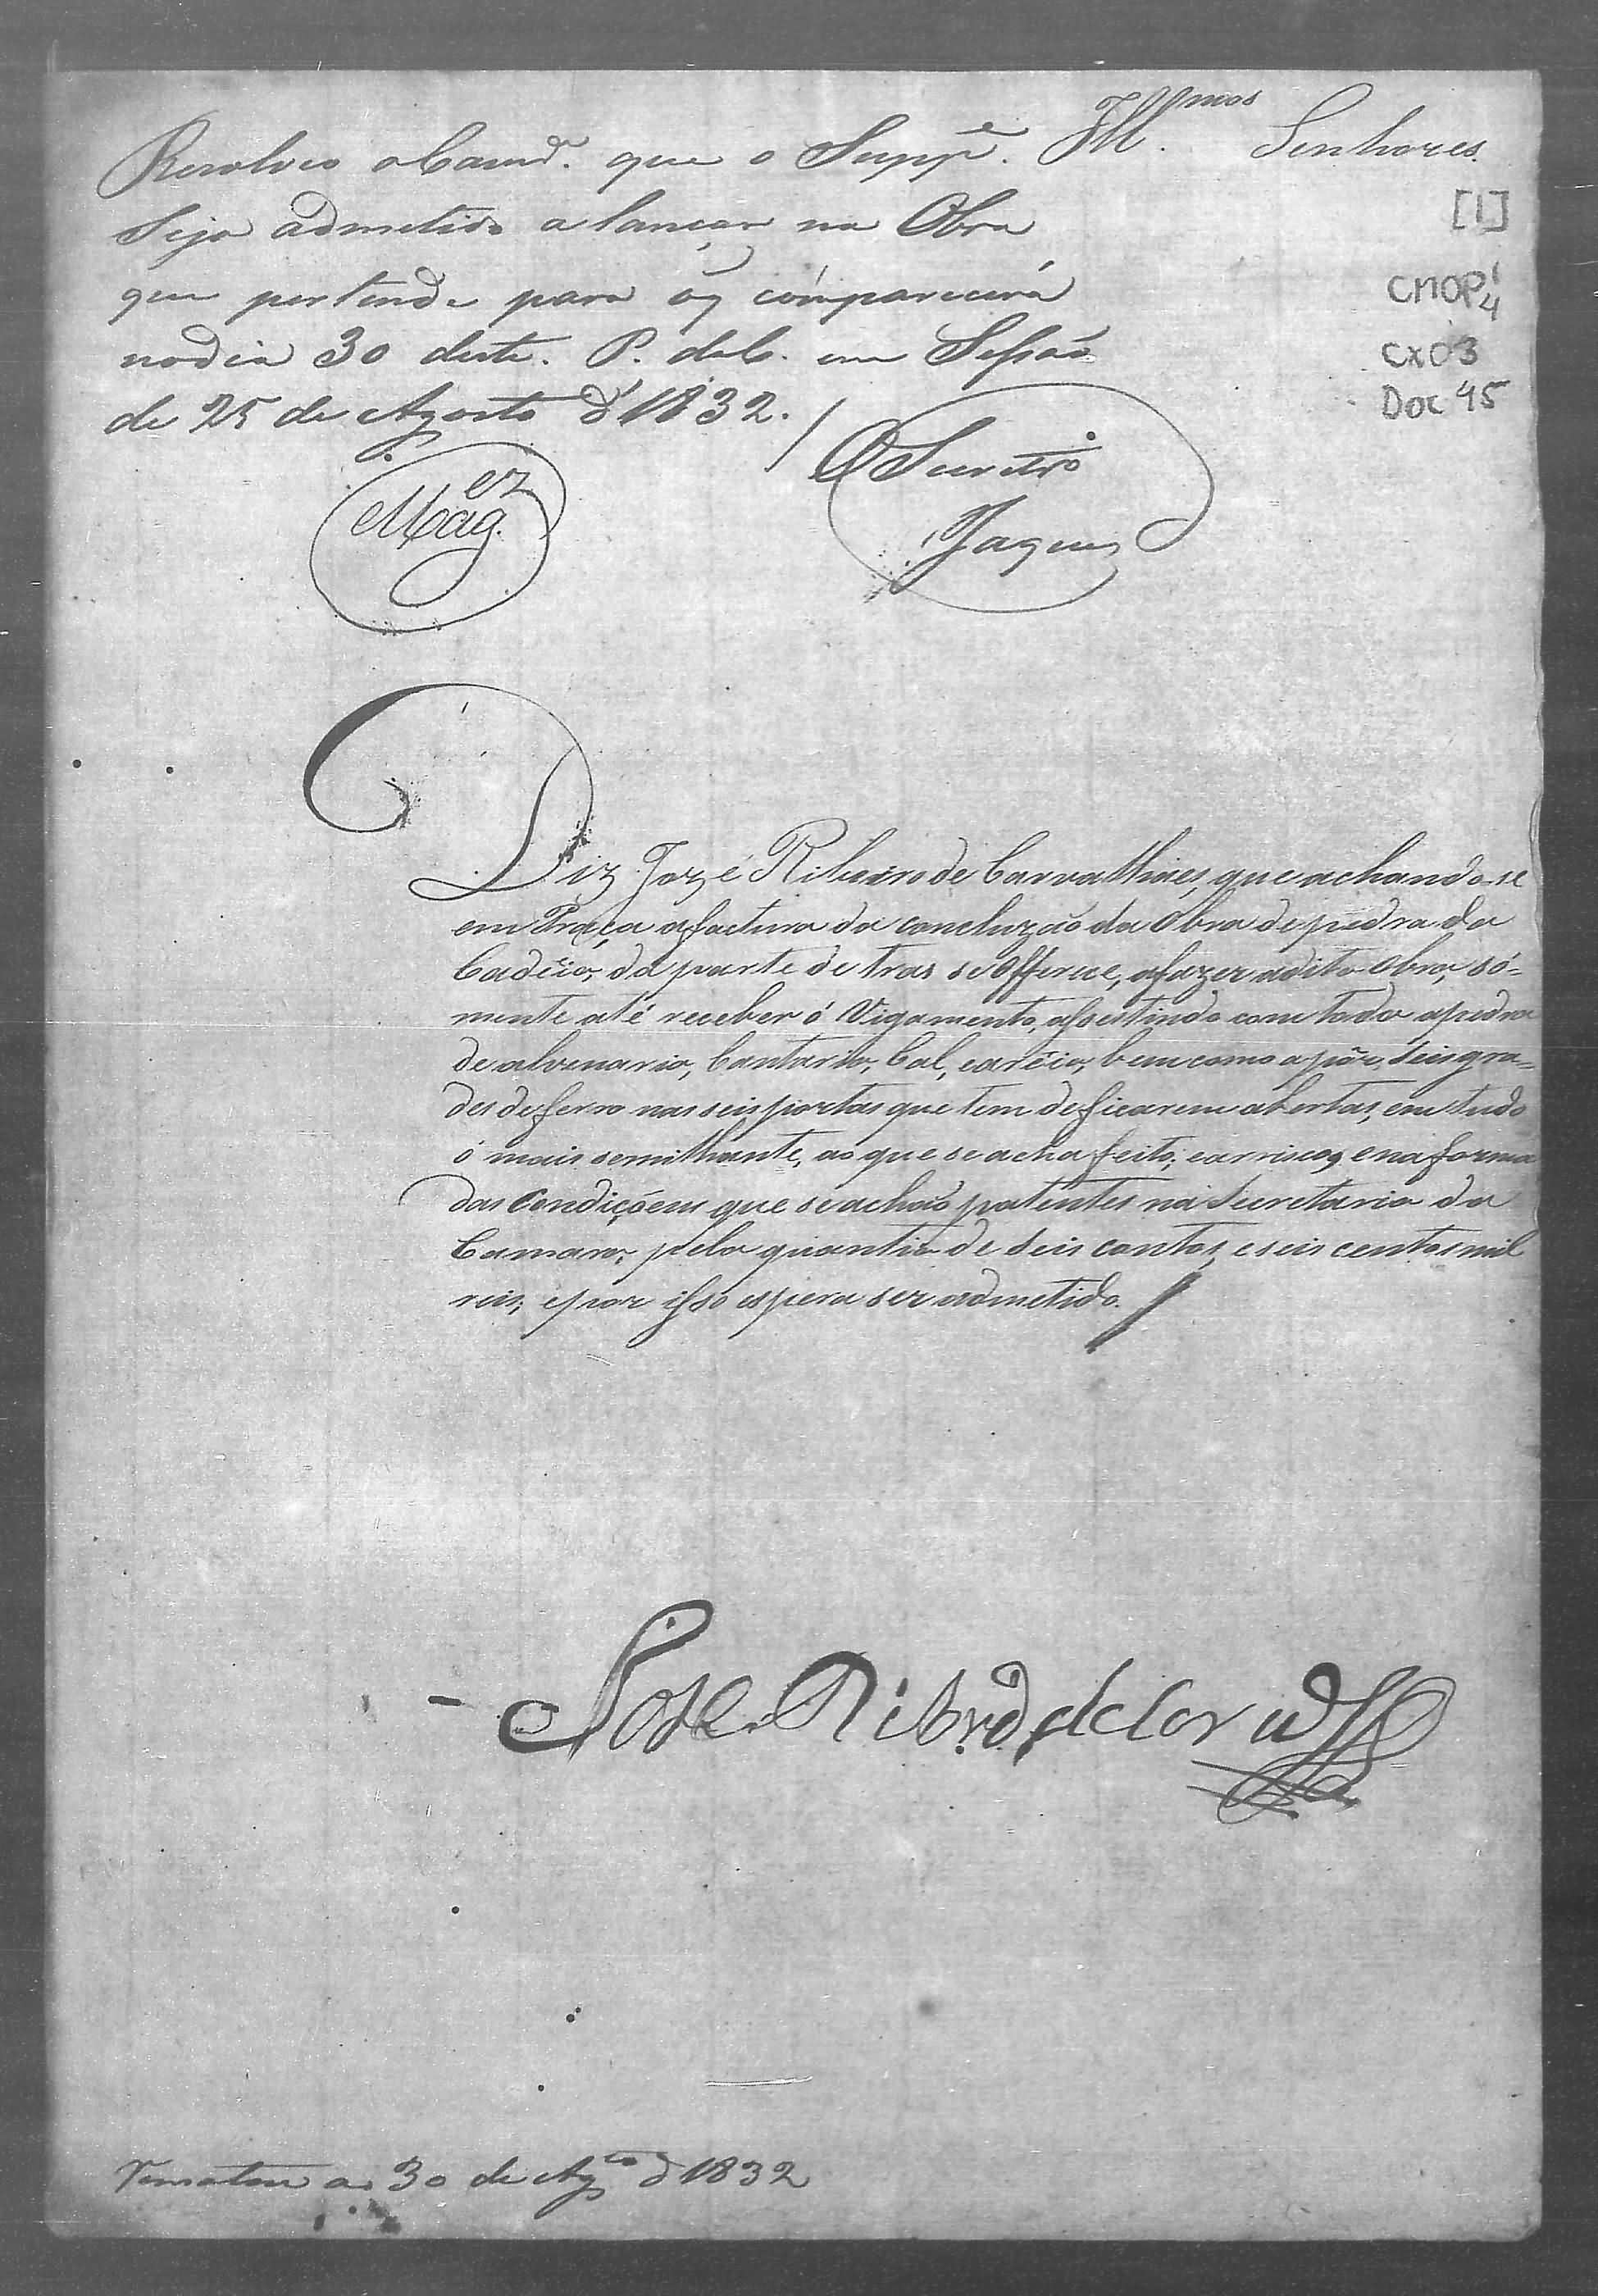 Ill.mos Senhores.
[1]
CMOP 1/4
CX 03
Doc 45
Resolveo a Camr.ª que o Supp.e
Seja admetido a lançar na Obra
que pertende para o q comparecerá
no dia 30 deste. P. delb. em Sessão
de 25 de Agosto d' 1832.
P.
Mag.ez
O Secretr.o
Jaques
Diz Jozé Ribeiro de Carvalhaes, que achando-se
em Praça a factura da concluzão da Obra de pedra da
Cadêia, da parte de tras se Offerece, a fazer a dita Obra, só-
mente até receber ó Vigamento, assestindo com toda a pedra
de alvenaria, Cantaria, Cal, e arêia, bem como a pôr, seis gra-
des de ferro nas seis portas que tem de ficarem abertas, em tudo
ó mais semilhante, ao que se acha feito; e a risco, e na forma
das Condiçoens que se achão patentes na Secretaria da
Camara, pela quantia de seis contos, e seis centos mil
reis; e por isso espera ser admetido.
Jose Ribr.o de Carv.es
Rematou a 30 de Ag.to d 1832